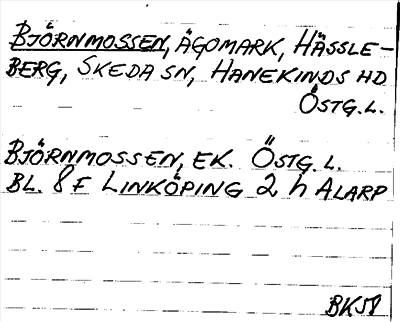 BJÖRNMOSSEN, ÄGOMARK, HÄSSLE-
BERG, SKEDA SN, HANEKINDS HD
ÖSTG.L.
BJÖRNMOSSEN, EK. ÖSTG.L.
BL. 8 F LINKÖPING 2 h ALARP